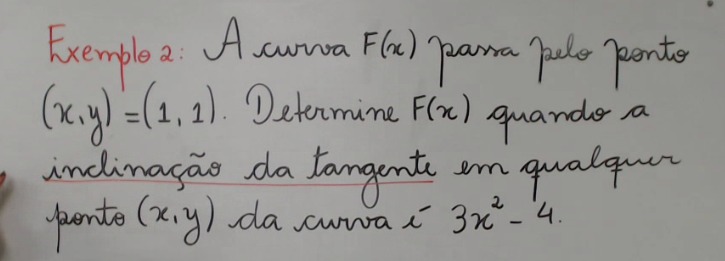 Exemplo 2: A curva F(x) passa pelo ponto
(x,y) = (1,1). Determine F(x) quando a
inclinação da tangente em qualquer
ponto (x,y) da curva é 3x² - 4.